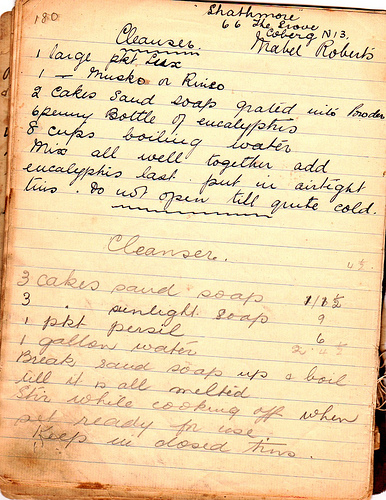 180
Strathmore
66 The Grove
Coberg N13.
Cleanser.
Mabel Roberts
1 large pkt Lux
1 — Minsko or Rinso
2 cakes Sand soap grated into Powder
6penny Bottle of eucalyptis
8 cups boiling water
Mix all well together add
eucalyptis last. put in airtight
tins. do not open till quite cold.
Cleanser.
3 cakes sand soap 1/1½
3 " sunlight soap 9
1 pkt persil 6
1 gallon water 2.4½
Break sand soap up & boil
till it is all melted
Stir while cooking off when
set ready for use
Keep in closed tins.